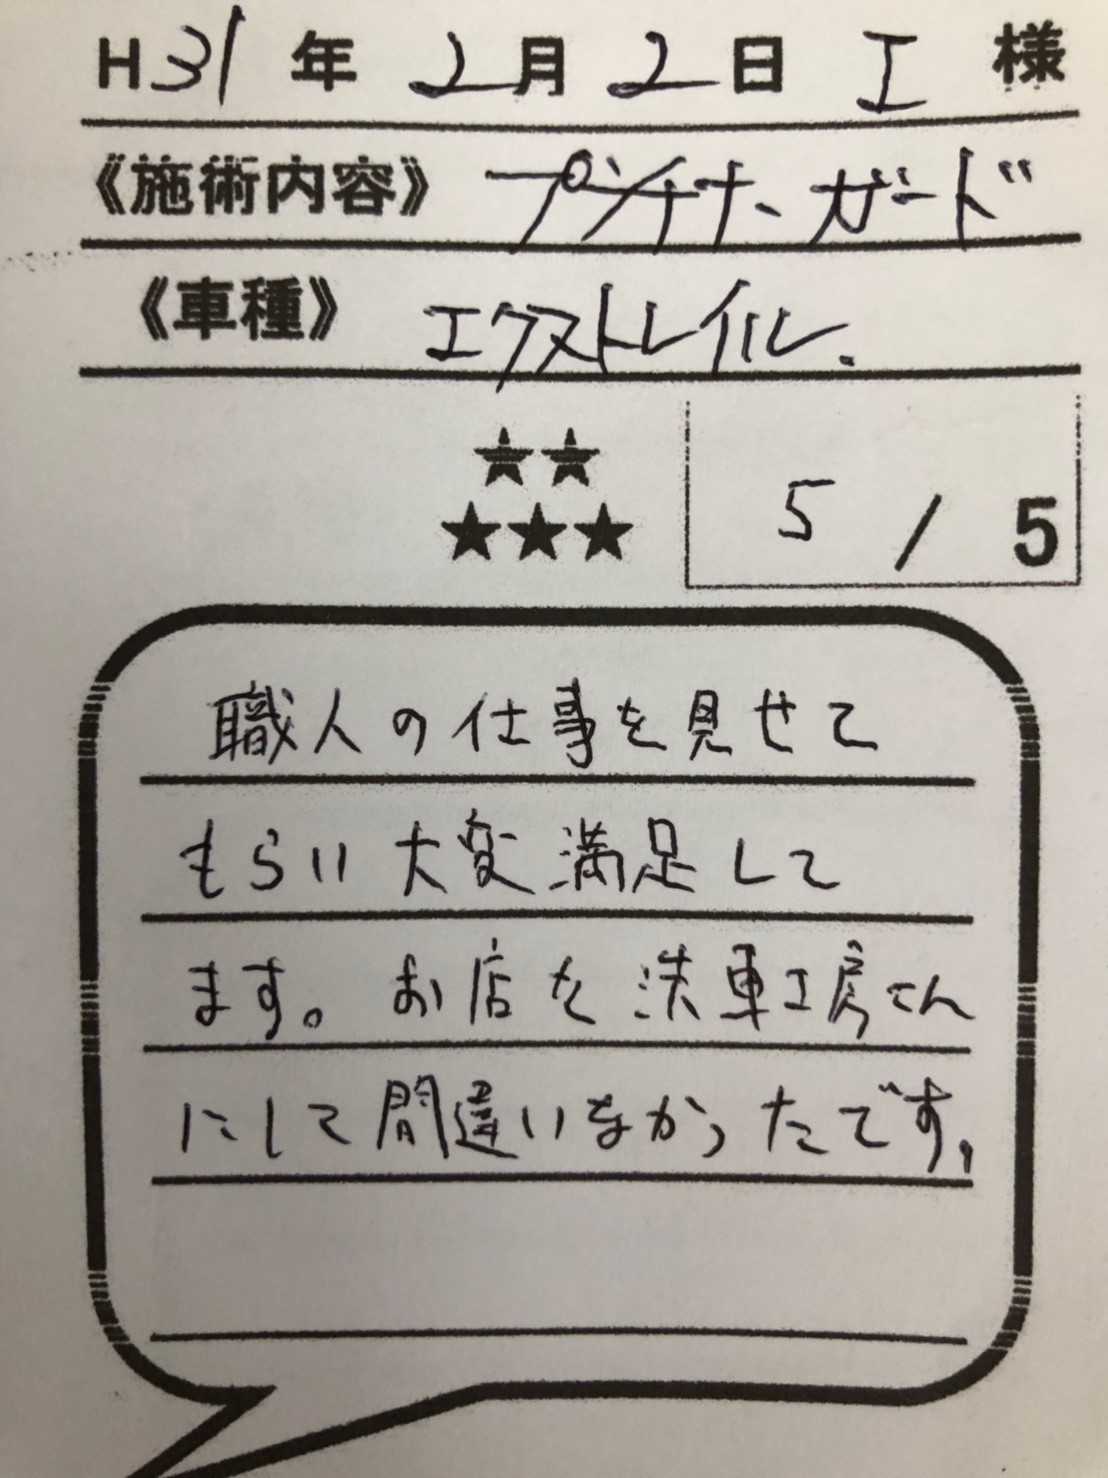 H31年 2月2日 I 様
《施術内容》 プラチナ、ガード
《車種》 エクストレイル.
★★
★★★
5 / 5
職人の仕事を見せて
もらい大変満足して
ます。お店を洗車工房さん
にして間違いなかったです。